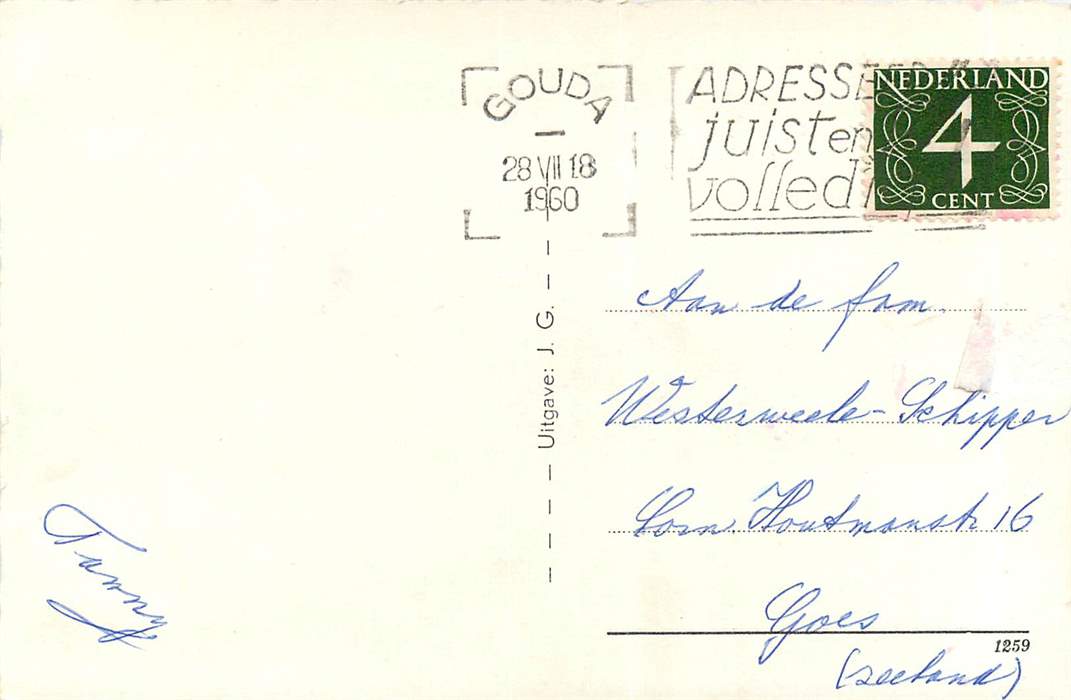 GOUDA
28 VII 18
1960
ADRESSEE
juist en
volledi
NEDERLAND
4
CENT
Uitgave: J. G.
Aan de fam.
Westerweele-Schipper
Corn. Houtmanstr 16
Goes
(zeeland)
1259
Fanny